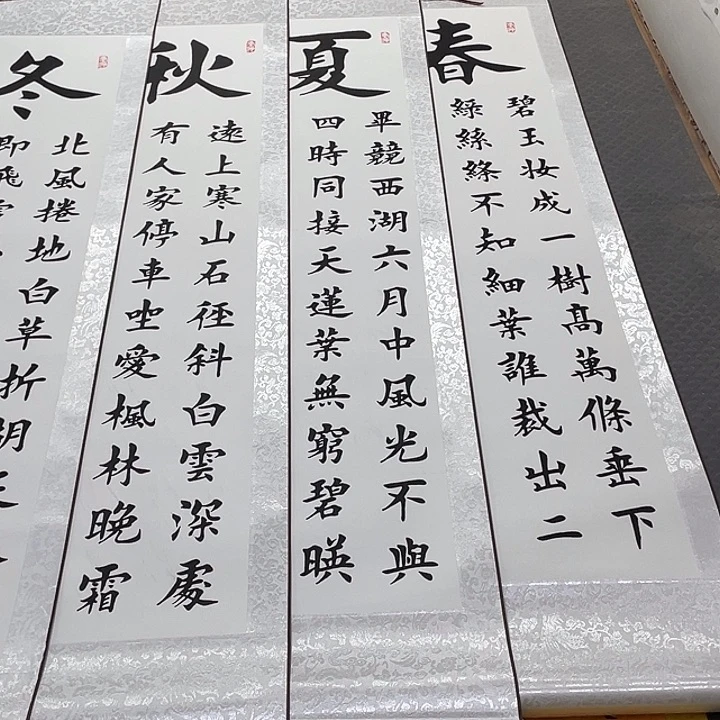 春
碧玉妆成一樹髙萬條垂下
緑絲絛不知細葉誰裁出二
夏
畢競西湖六月中風光不與
四時同接天蓮葉無窮碧暎
秋
遠上寒山石徑斜白雲深處
有人家停車坐愛楓林晚霜
冬
北風捲地白草折胡
即飛